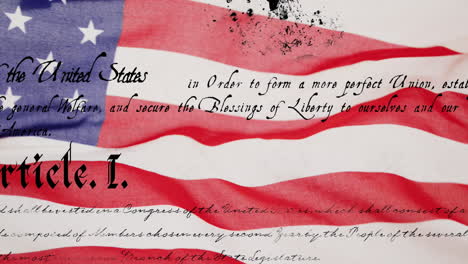 f the United States in Order to form a more perfect Union, estab
e general Welfare, and secure the Blessings of Liberty to ourselves and our
America.
rticle. I.
d shall be vested in a Congress of the United which shall consist of a
be composed of Members chosen every second Year by the People of the several
most Branch of the State Legislature